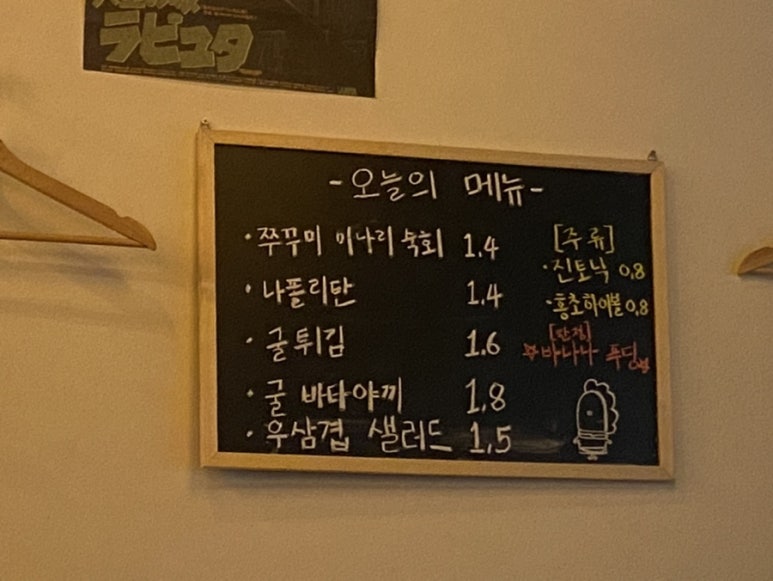 ラピュタ
-오늘의 메뉴-
·쭈꾸미 미나리 숙회 1.4
·나폴리탄 1.4
·굴튀김 1.6
·굴 바타야끼 1.8
·우삼겹 샐러드 1.5
[주류]
·진토닉 0.8
·홍초하이볼 0.8
[한정]
바나나 푸딩